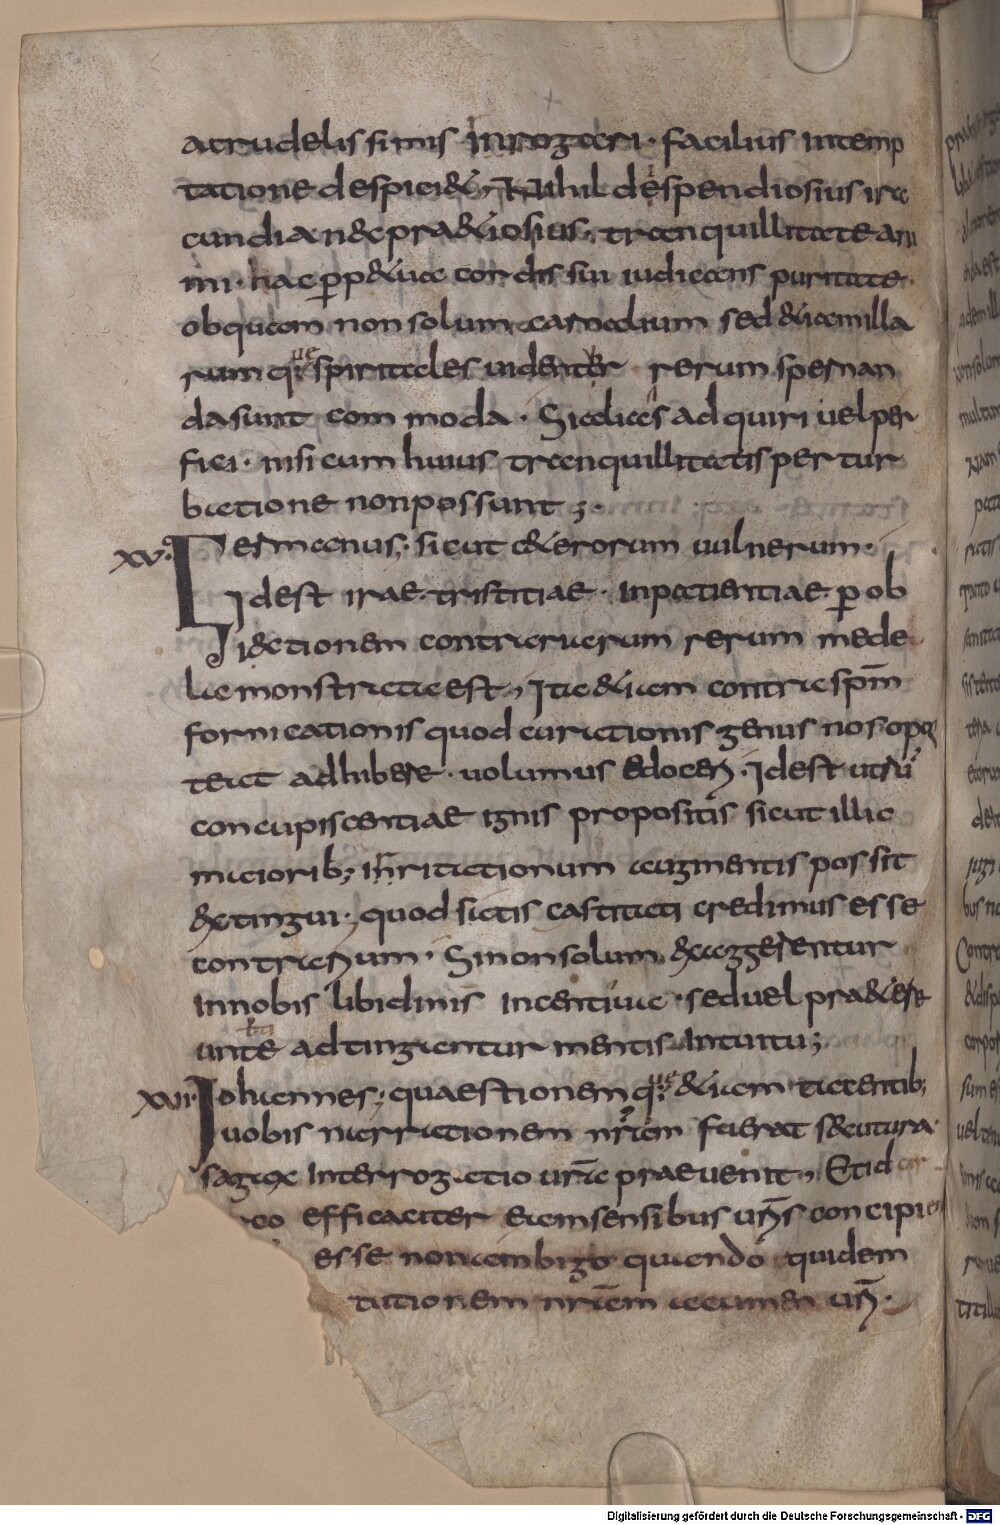 atrudelissimis inrogari · facilius intemp
tatione despici&; Nihil despendiosius ira
cundia n& pradiosius; tranquillitate ani
mi · hac p p&ua cordis sui iudicans puritate ·
ob quam non solum carnalium sed &iam illa
rum que spiritales uidentur rerum spernan
da sunt commoda · Si ediscens adquiri uel per
fici · nisi cum huius tranquillitatis pertur
batione non possunt;
xv. Germanus; sicut c&erorum uulnerum ·
Id est irae · tristitiae · inpatientiae p ob
i&ctionem contrariarum rerum mede
la monstrata est, Ita &iam contra spm
fornicationis quod curationis genus nos opor
teat adhibere · uolumus edoceri · Id est utrū
concupiscentiae ignis propositis sicut illic
maiorib; inritationum augmentis possit
&xtingui · quod satis castitati credimus esse
contrarium · Si non solum &xaggerentur
in nobis libidinis incentiua · sed uel pra&ere
unte adtingantur mentis intuitu;
xvi. Iohannes; quaestionem que &iam tacentib;
uobis narrationem nram fuerat secutura ·
sagax interrogatio ura praeuenit, Et id
efficaciter eam sensibus uris concipien
esse non ambigo · quando quidem
tationem nram acumen uri ·
Digitalisierung gefördert durch die Deutsche Forschungsgemeinschaft - DFG